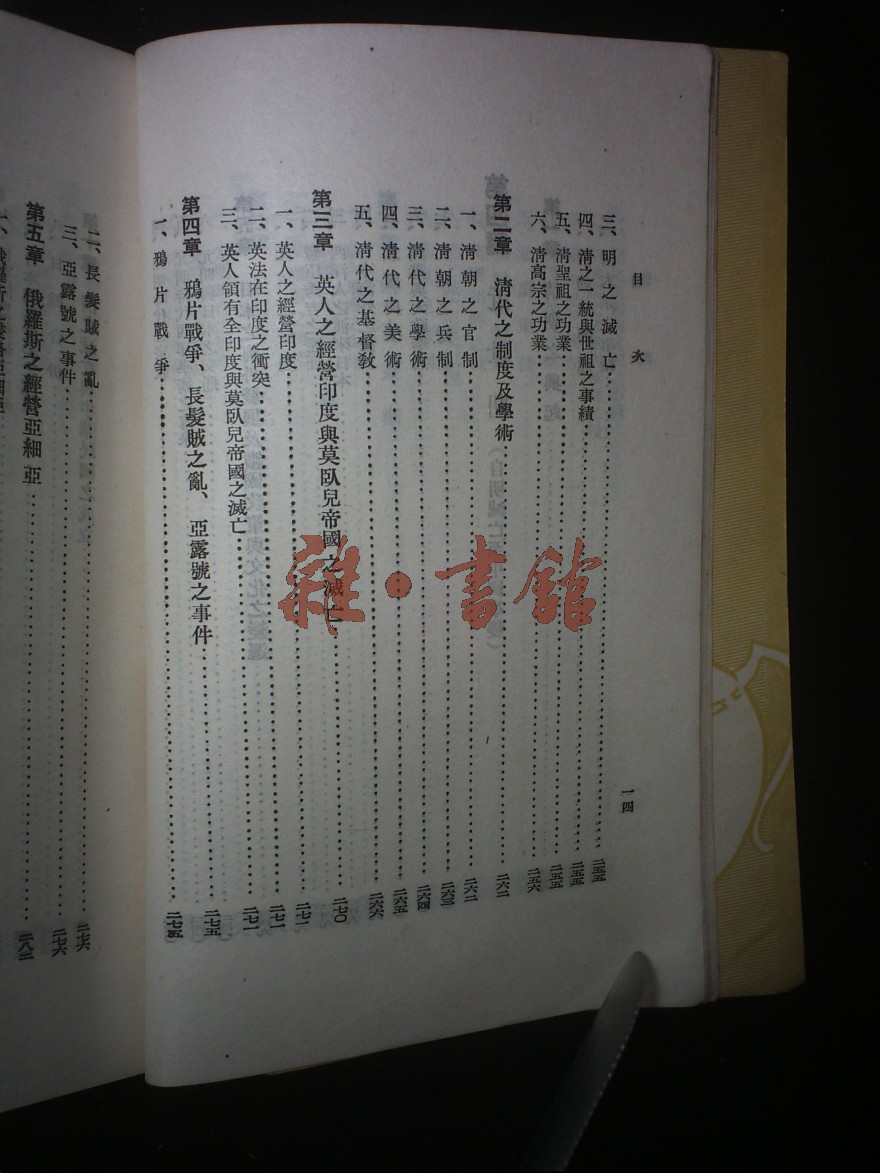 目次
一四
三、明之滅亡……二五五
四、清之一統與世祖之事績……二五五
五、清聖祖之功業……二五五
六、清高宗之功業……二五六
第二章 清代之制度及學術……二六二
一、清朝之官制……二六二
二、清朝之兵制……二六三
三、清代之學術……二六四
四、清代之美術……二六五
五、清代之基督敎……二六六
第三章 英人之經營印度與莫臥兒帝國之滅亡……二七〇
一、英人之經營印度……二七一
二、英法在印度之衝突……二七一
三、英人領有全印度與莫臥兒帝國之滅亡……二七一
第四章 鴉片戰爭、長髮賊之亂、亞露號之事件……二七五
一、鴉片戰爭……二七五
二、長髮賊之亂……二七六
三、亞露號之事件……二七六
第五章 俄羅斯之經營亞細亞……二八二
雜·書館